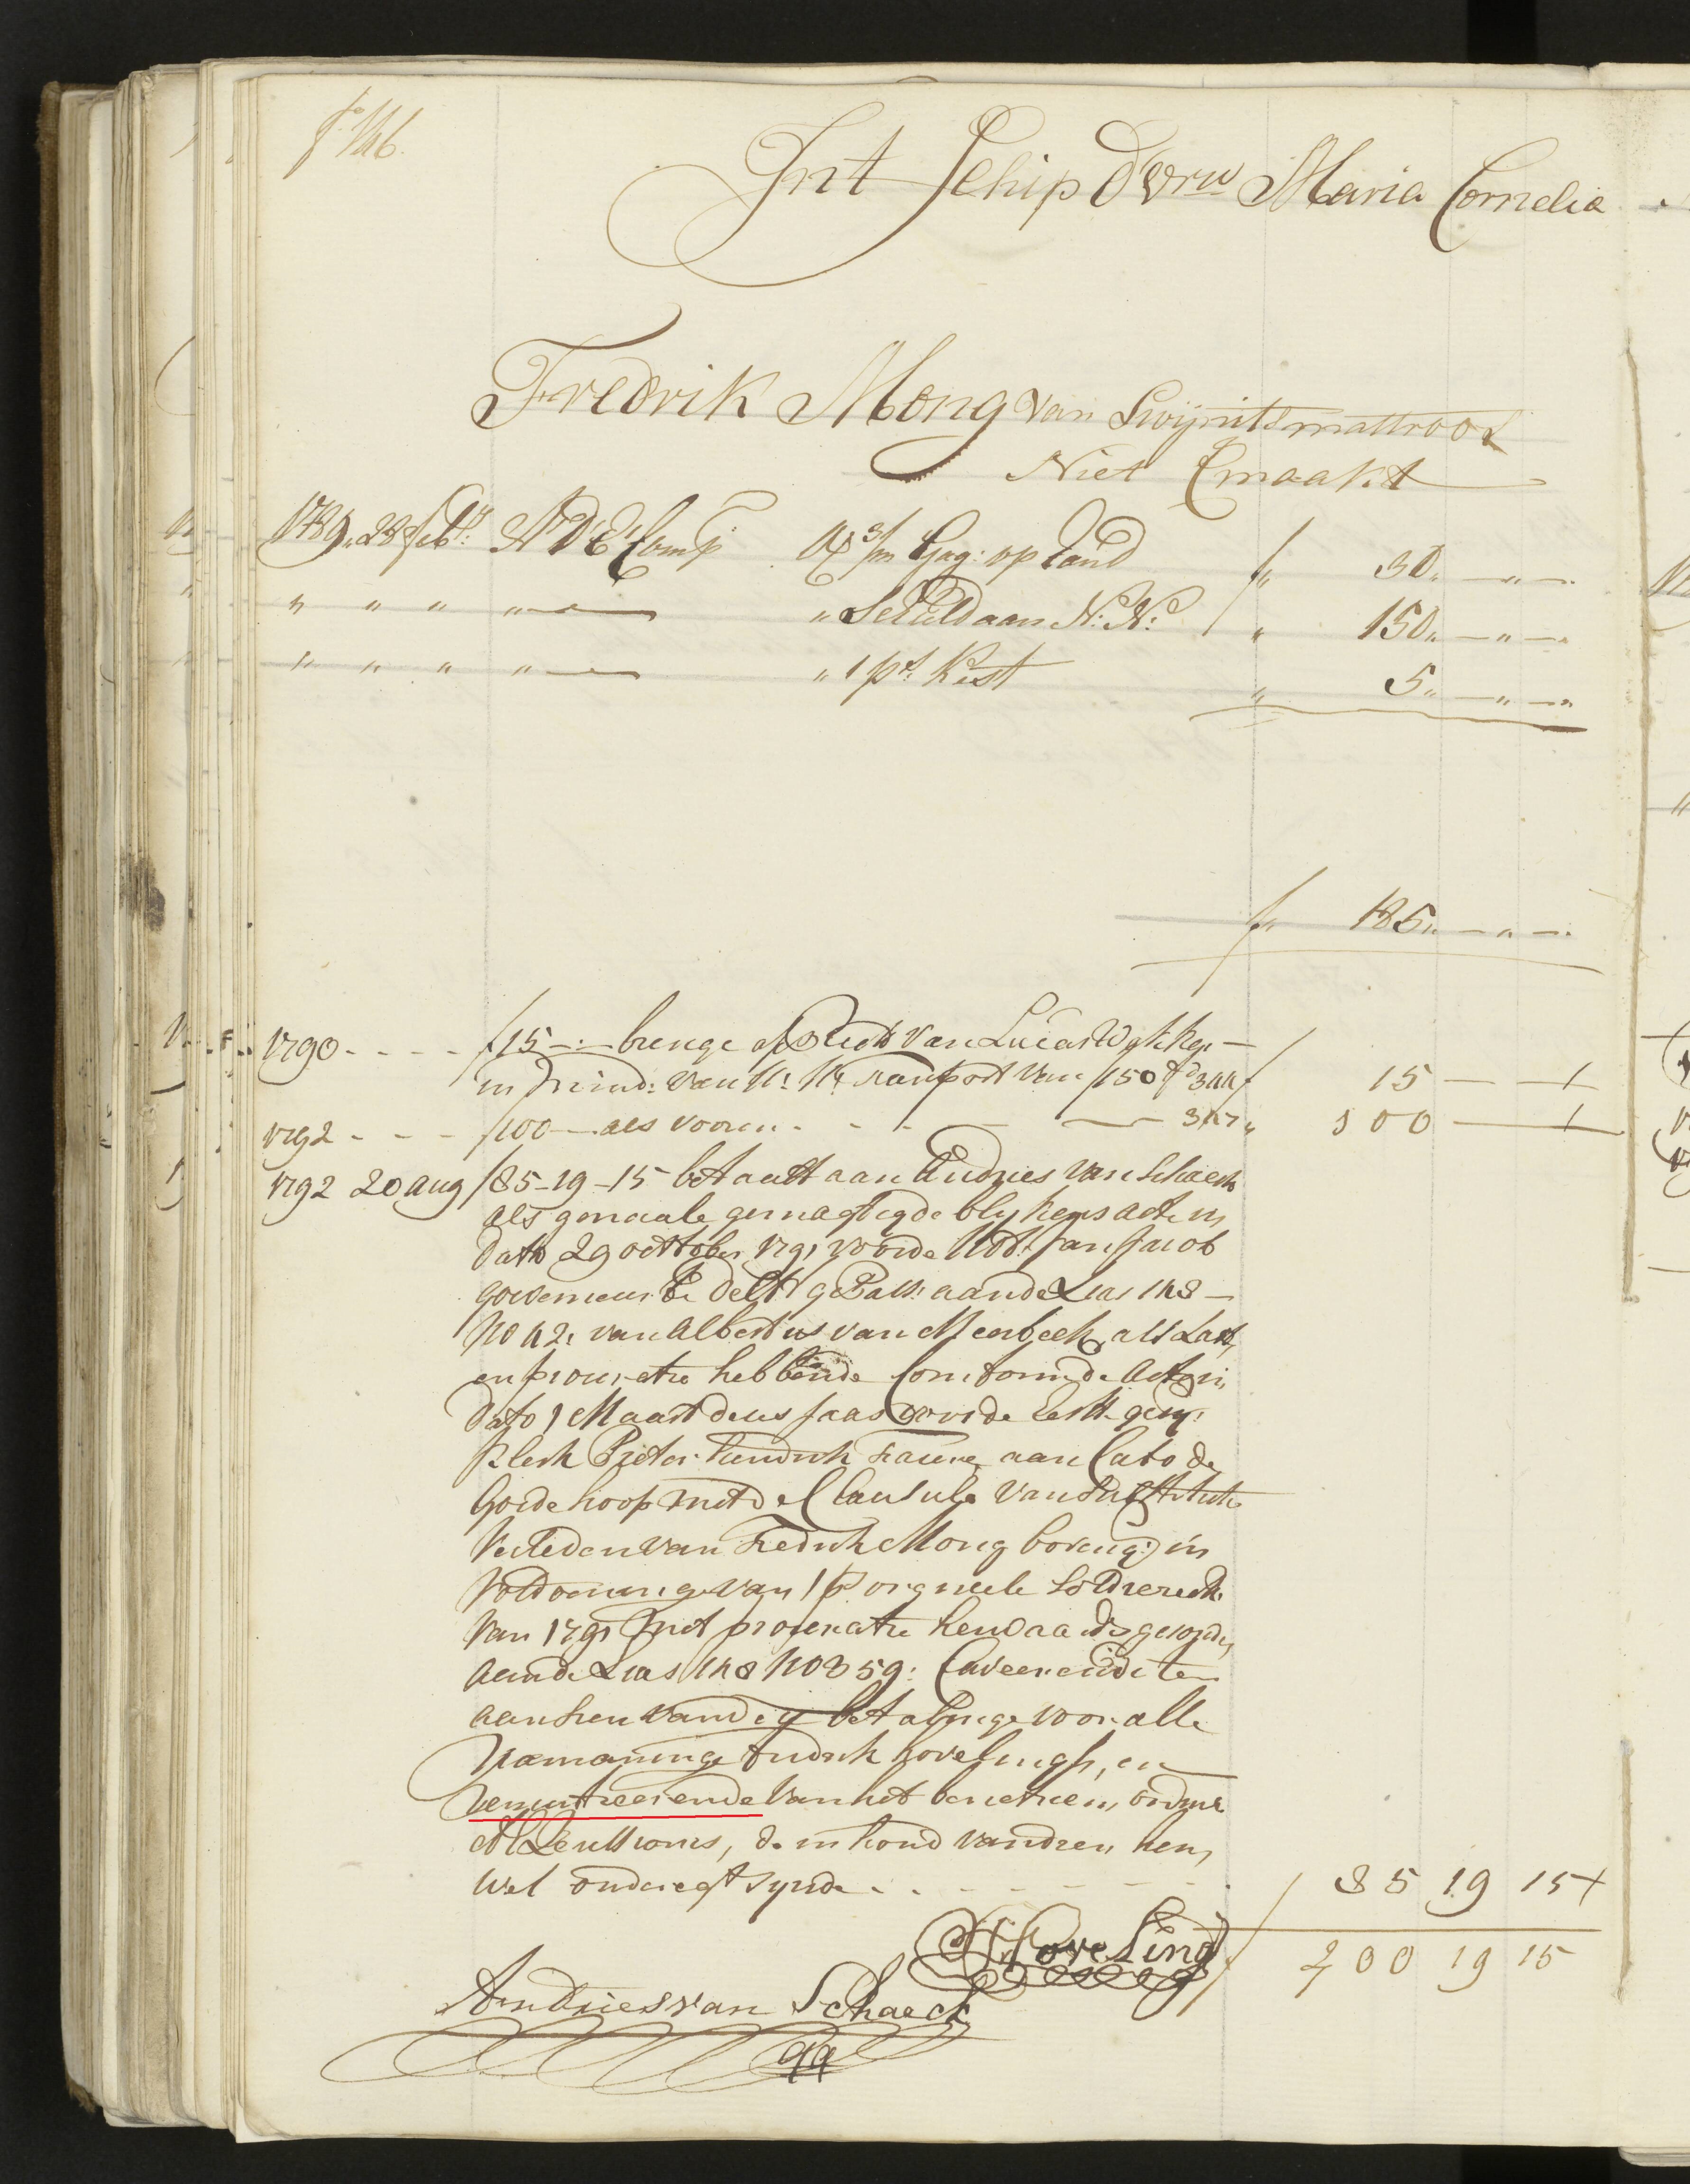 fo 146.
Int Schip d'Vrw Maria Cornelia
Fredrik Mong van Swijnits mattroos
Niet Gemaakt
1789. 28 Feb: A D'E Comp Op 3/m Gag: op hand f 30. — " —
" " " " — " Schuld aan N: N: " 150. — " —
" " " " — " 1 ps Kist " 5. — " —
f 185. — " —
1790 - - - - f 15 — brenge op Credt van Lucas
in mind: van N: N: Transport van f 150 fo 344 f 15 — —
1792 - - - f 100 — als vooren - - - — 347 " 100 — —
1792 20 aug f 85-19-15 betaalt aan Andries van Schaeck
als generale gemagtigde blykens acte in
dato 29 october 1791 voor de Not: Jan Jacob
Gouverneur te Delft gepass: aan de Lias 148 —
No 42. van Albertus van Meerbeek, als Last
en procuratie hebbende conform de Acte in
dato 1 Maart deses Jaars voor de Eerste gesw:
Klerk Pieter Hendrik Faure, aan Cabo de
Goede hoop met de Clausule van Substitutie
verleden van Fredrik Mong boveng: in
voldoening van 1 ps orgineele Soldereek:
van 1791 met procuratie herwaards gesonden
aan de Lias 148 No 859: Caveerende ten
aansien van dese betalinge voor alle
namaninge Fredrik Hovelingh, en
renuntieerende van het beneficien, ordinis
et Excussionis, de inhoud van dien hem
wel onderregt synde - - - - - f 85 19 15
f 200 19 15
Hoveling
Andries van Schaeck
qq